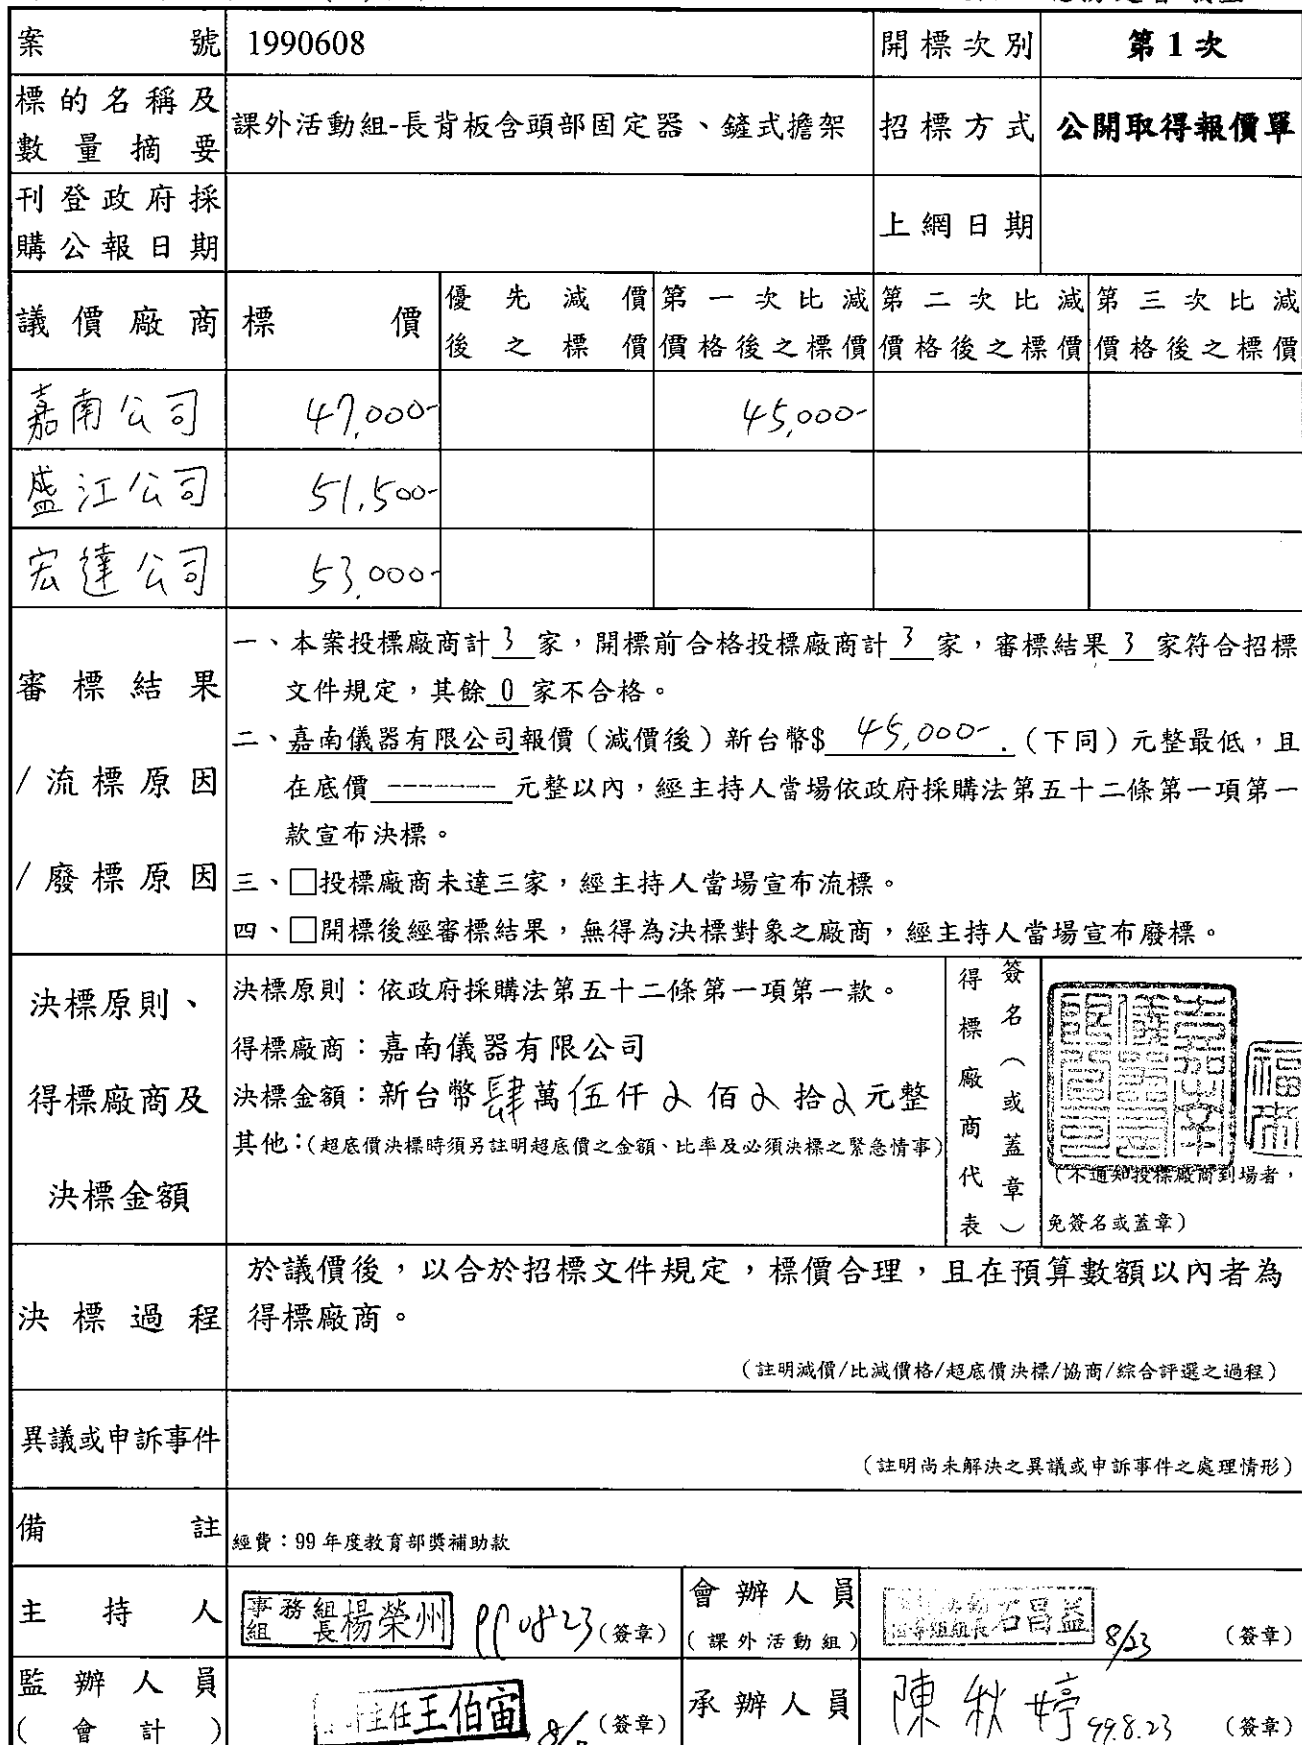 案號 1990608 開標次別 第1次
標的名稱及數量摘要 課外活動組-長背板含頭部固定器、鏟式擔架 招標方式 公開取得報價單
刊登政府採購公報日期 上網日期
議價廠商 標價 優先減價後之標價 第一次比減價格後之標價 第二次比減價格後之標價 第三次比減價格後之標價
嘉南公司 47,000- 45,000-
盛江公司 51,500-
宏達公司 53,000-
審標結果/流標原因/廢標原因
一、本案投標廠商計 3 家,開標前合格投標廠商計 3 家,審標結果 3 家符合招標
文件規定,其餘 0 家不合格。
二、嘉南儀器有限公司報價(減價後)新台幣$ 45,000- .(下同)元整最低,且
在底價 ------- 元整以內,經主持人當場依政府採購法第五十二條第一項第一
款宣布決標。
三、□投標廠商未達三家,經主持人當場宣布流標。
四、□開標後經審標結果,無得為決標對象之廠商,經主持人當場宣布廢標。
決標原則、得標廠商及決標金額
決標原則:依政府採購法第五十二條第一項第一款。
得標廠商:嘉南儀器有限公司
決標金額:新台幣肆萬伍仟0佰0拾0元整
其他:(超底價決標時須另註明超底價之金額、比率及必須決標之緊急情事)
得標廠商代表
簽名(或蓋章)
嘉南儀器有限公司
(不通知投標廠商到場者,
免簽名或蓋章)
決標過程
於議價後,以合於招標文件規定,標價合理,且在預算數額以內者為
得標廠商。
(註明減價/比減價格/超底價決標/協商/綜合評選之過程)
異議或申訴事件
(註明尚未解決之異議或申訴事件之處理情形)
備註 經費:99年度教育部獎補助款
主持人 事務組組長楊榮州 990823(簽章) 會辦人員(課外活動組) 石昌益 8/23 (簽章)
監辦人員(會計) 主任王伯宙 8/ (簽章) 承辦人員 陳秋婷 99.8.23 (簽章)